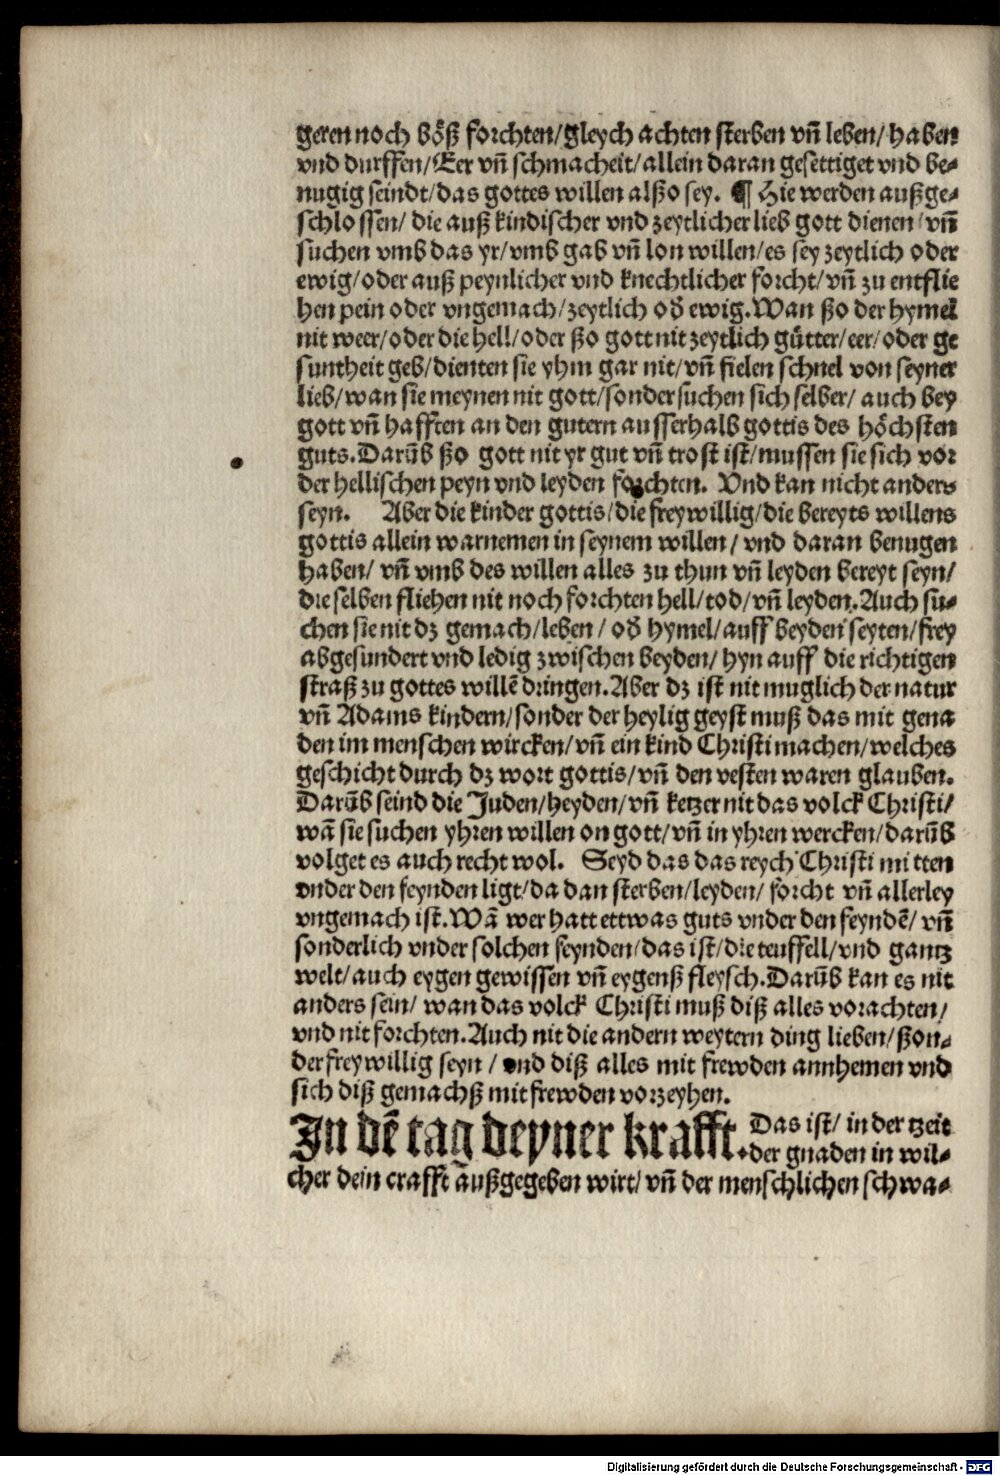 geren noch bőß forchten/gleych achten sterben vn̄ leben/haben
vnd durffen/Eer vn̄ schmacheit/allein daran gesettiget vnd be⸗
nugig seindt/das gottes willen alßo sey. ¶ Hie werden außge⸗
schlossen/ die auß kindischer vnd zeytlicher lieb gott dienen/vn̄
suchen vmb das yr/vmb gab vn̄ lon willen/es sey zeytlich oder
ewig/oder auß peynlicher vnd knechtlicher forcht/vn̄ zu entflie
hen pein oder vngemach/zeytlich oð ewig.Wan ßo der hymel
nit weer/oder die hell/oder ßo gott nit zeytlich gütter/eer/oder ge
suntheit geb/dienten sie yhm gar nit/vn̄ fielen schnel von seyner
lieb/wan sie meynen nit gott/sonder suchen sich selber/ auch bey
gott vn̄ hafften an den gutern ausserhalb gottis des höchsten
guts.Darūb ßo gott nit yr gut vn̄ trost ist/mussen sie sich vor
der hellischen peyn vnd leyden forchten. Vnd kan nicht anders
seyn. Aber die kinder gottis/die freywillig/die bereyts willens
gottis allein warnemen in seynem willen/ vnd daran benugen
haben/ vn̄ vmb des willen alles zu thun vn̄ leyden bereyt seyn/
die selben fliehen nit noch forchten hell/tod/vn̄ leyden.Auch su⸗
chen sie nit dz gemach/leben/ oð hymel/auff beyden seyten/frey
abgesundert vnd ledig zwischen beyden/ hyn auff die richtigen
straß zu gottes willē dringen.Aber dz ist nit muglich der natur
vn̄ Adams kindern/sonder der heylig geyst muß das mit gena
den im menschen wircken/vn̄ ein kind Christi machen/welches
geschicht durch dz wort gottis/vn̄ den vesten waren glauben.
Darūb seind die Juden/heyden/vn̄ ketzer nit das volck Christi/
wā sie suchen yhren willen on gott/vn̄ in yhren wercken/darūb
volget es auch recht wol. Seyd das das reych Christi mitten
vnder den feynden ligt/da dan sterben/leyden/ forcht vn̄ allerley
vngemach ist.Wā wer hatt ettwas guts vnder den feyndē/ vn̄
sonderlich vnder solchen feynden/das ist/die teuffell/vnd gantz
welt/auch eygen gewissen vn̄ eygenß fleysch.Darūb kan es nit
anders sein/ wan das volck Christi muß diß alles vorachten/
vnd nit forchten.Auch nit die andern weytern ding lieben/ßon⸗
der freywillig seyn/ vnd diß alles mit frewden annhemen vnd
sich diß gemachß mit frewden vorzeyhen.
In dē tag deyner krafft. Das ist/ in der tzeit
der gnaden in wil⸗
cher dein crafft außgegeben wirt/ vn̄ der menschlichen schwa⸗
Digitalisierung gefördert durch die Deutsche Forschungsgemeinschaft - DFG